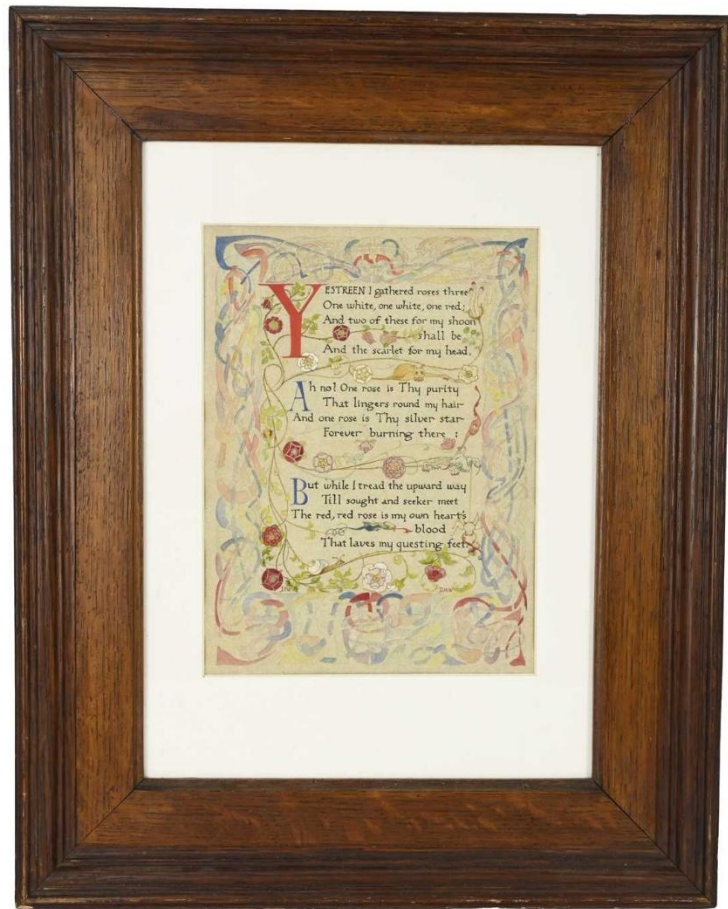 YESTREEN I gathered roses three
One white, one white, one red;
And two of these for my shoon
shall be
And the scarlet for my head.
Ah no! One rose is Thy purity
That lingers round my hair
And one rose is Thy silver star
Forever burning there :
But while I tread the upward way
Till sought and seeker meet
The red, red rose is my own heart's
blood
That laves my questing feet